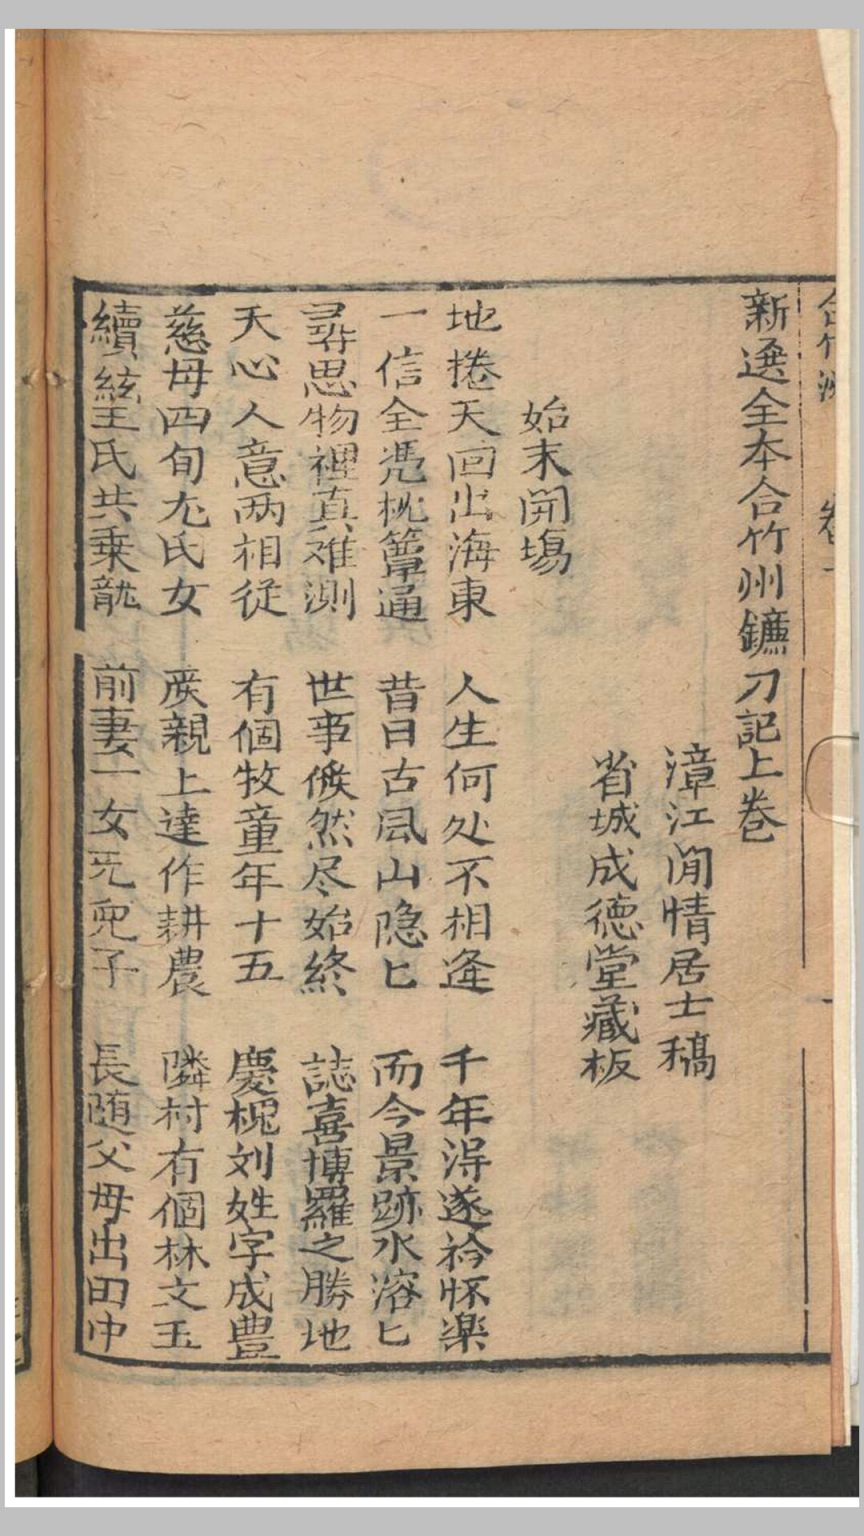 合竹洲 卷一
新選全本合竹州鐮刀記上卷
漳江閒情居士稿
省城成德堂藏板
始末開場
地捲天回出海東 人生何处不相逢 千年淂遂衿怀楽
一信全凴枕簟通 昔日古凨山隐匕 而今景跡水溶匕
尋思物裡真难測 世事倐然尽始終 誌喜博羅之勝地
天心人意两相従 有個牧童年十五 慶槐刘姓字成豊
慈母四旬尢氏女 庋親上達作耕農 隣村有個林文玉
續絃王氏共乗龍 前妻一女旡兒子 長随父母出田中